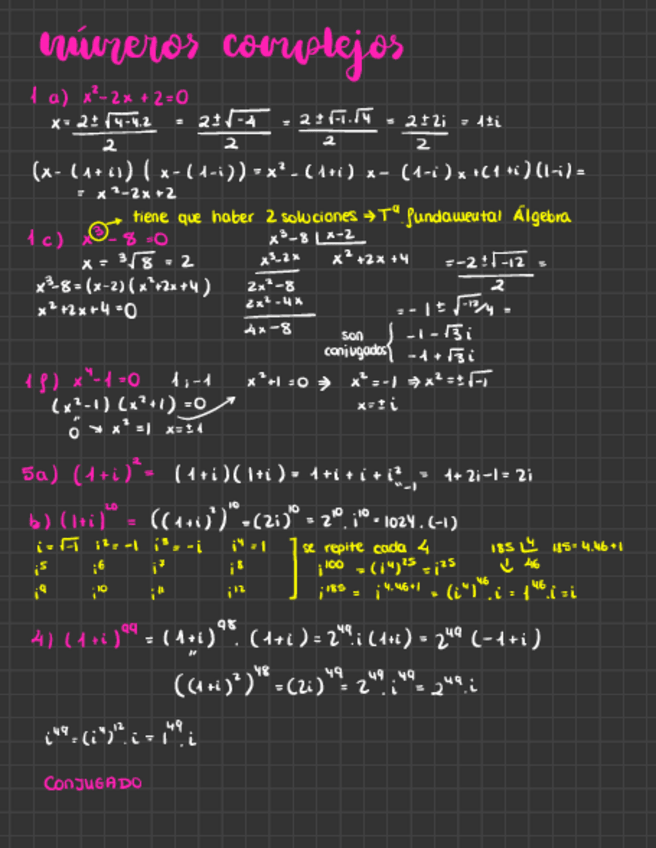 números complejos
1 a) x²-2x+2=0
x = (2±√(4-4.2))/2 = (2±√-4)/2 = (2±√-1.√4)/2 = (2±2i)/2 = 1±i
(x-(1+i)) (x-(1-i)) = x² - (1+i) x - (1-i) x + (1+i)(1-i) =
= x²-2x+2
→ tiene que haber 2 soluciones → Tª. fundamental Álgebra
1 c) x³-8=0
x = ³√8 = 2
x³-8=(x-2)(x²+2x+4)
x²+2x+4=0
x³-8 | x-2
x³-2x x²+2x+4
2x²-8
2x²-4x
4x-8
= (-2±√-12)/2 =
= -1 ± √-12/4 =
son conjugados { -1-√3 i
-1+√3 i
1f) x⁴-1=0 1,-1 x²+1=0 ⇒ x²=-1 ⇒ x²=±√-1
(x²-1) (x²+1) =0 x=±i
0 → x²=1 x=±1
5a) (1+i)² = (1+i)(1+i) = 1+i+i+i² = 1+2i-1 = 2i
" -1
b) (1+i)²⁰ = ((1+i)²)¹⁰ = (2i)¹⁰ = 2¹⁰. i¹⁰ = 1024.(-1)
i=√-1 i²=-1 i³=-i i⁴=1 ] se repite cada 4 185 |4 185=4.46+1
i⁵ i⁶ i⁷ i⁸ i¹⁰⁰ = (i⁴)²⁵ = i²⁵ ↓ 46
i⁹ i¹⁰ i¹¹ i¹² i¹⁸⁵ = i⁴·⁴⁶⁺¹ = (i⁴)⁴⁶.i = 1⁴⁶.i = i
4) (1+i)⁹⁹ = (1+i)⁹⁸. (1+i) = 2⁴⁹.i (1+i) = 2⁴⁹ (-1+i)
"
((1+i)²)⁴⁸ = (2i)⁴⁹ = 2⁴⁹.i⁴⁹ = 2⁴⁹.i
i⁴⁹ = (i⁴)¹².i = 1⁴⁹.i
CONJUGADO